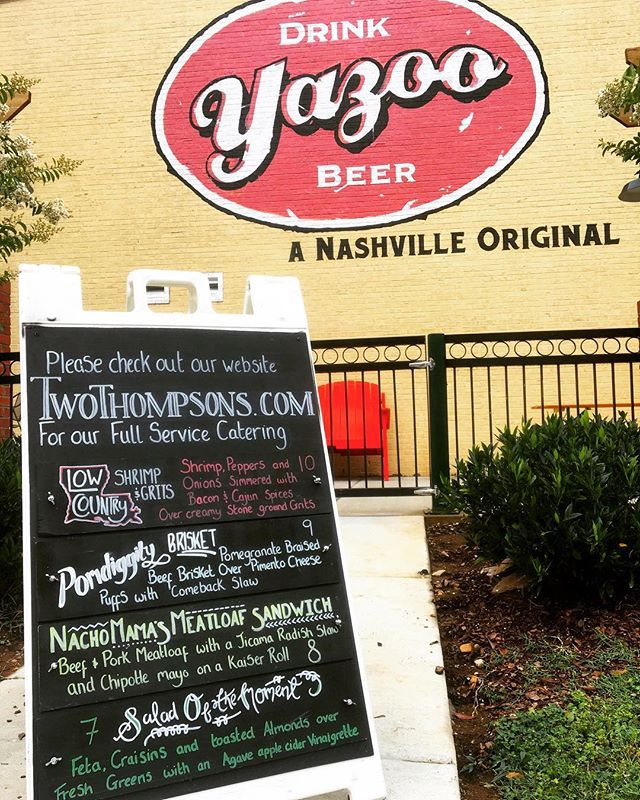 DRINK
Yazoo
BEER
A NASHVILLE ORIGINAL
Please check out our website
TWOTHOMPSONS.COM
For our Full Service Catering
LOW COUNTRY SHRIMP & GRITS
Shrimp, Peppers and 10
Onions Simmered with
Bacon & Cajun Spices
Over creamy Stone ground Grits
Pomdiggity BRISKET 9
Pomegranate Braised
Beef Brisket Over Pimento Cheese
Puffs with Comeback Slaw
NACHOMAMA'S MEATLOAF SANDWICH
Beef & Pork Meatloaf with a Jicama Radish Slaw
and Chipotle mayo on a Kaiser Roll 8
7 Salad Of the Moment
Feta, Craisins and toasted Almonds over
Fresh Greens with an Agave apple cider Vinaigrette